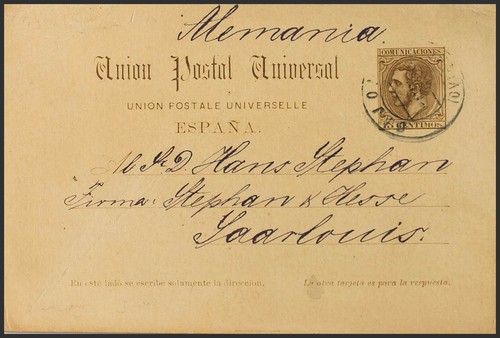 Alemania.
COMUNICACIONES
Union Postal Universal
UNION POSTALE UNIVERSELLE
ESPAÑA.
CENTIMOS
Al S. D. Hans Stephan
Firma: Stephan & Hesse
Saarlouis.
En esté lado se escribe solamente la dirección.
La otra tarjeta es para la respuesta.